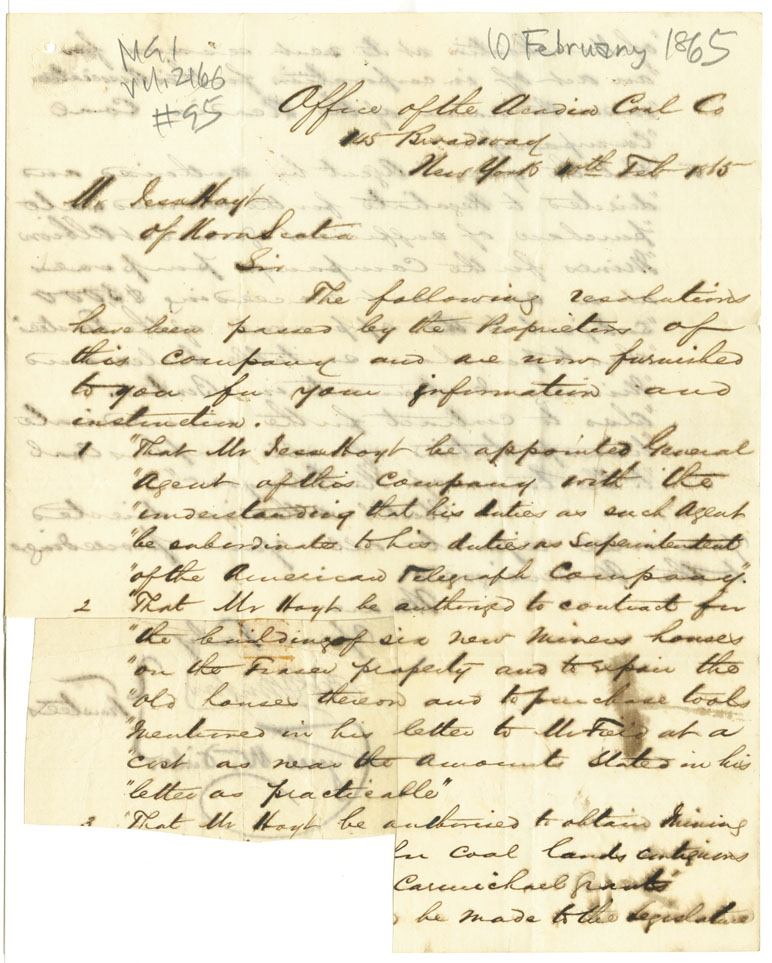 MG1
vol. 2166
#95
10 February 1865
Office of the Acadia Coal Co
145 Broadway
New York 10th Feb 1865
Mr Jesse Hoyt
of Nova Scotia
Sir
The following resolutions
have been passed by the Proprietors of
this Company and are now furnished
to you for your information and
instruction.
1 "That Mr Jesse Hoyt be appointed General
"Agent of this Company with the
"understanding that his duties as such Agent
"be subordinate to his duties as Superintendent
"of the American Telegraph Company".
2 "That Mr Hoyt be authorized to contract for
"the building of six new Miners houses
"on the Fraser property and to repair the
"old houses thereon and to purchase tools
"Mentioned in his letter to Mr Field at a
"cost as near the amounts stated in his
"letter as practicable"
3 "That Mr Hoyt be authorised to obtain Mining
for coal lands contiguous
Carmichael Grants
be made to the Legislature